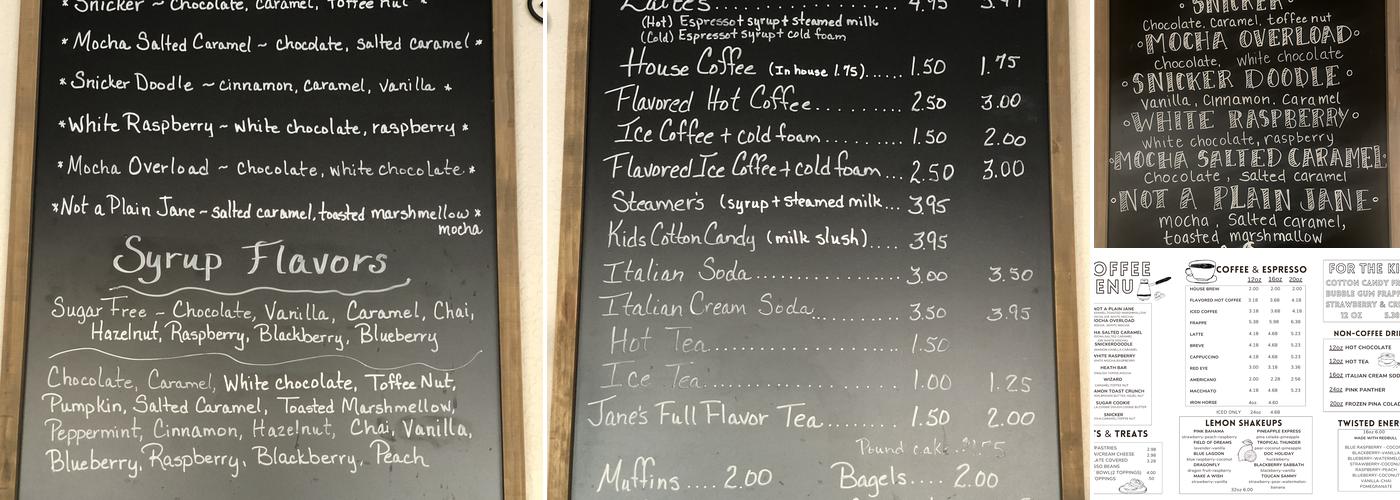 Snicker ~ Chocolate, Caramel, Toffee nut *
* Mocha Salted Caramel ~ chocolate, salted caramel *
* Snicker Doodle ~ cinnamon, caramel, vanilla *
* White Raspberry ~ white chocolate, raspberry *
* Mocha Overload ~ chocolate, white chocolate *
* Not a Plain Jane ~ salted caramel, toasted marshmellow *
mocha
Syrup Flavors
Sugar Free - Chocolate, Vanilla, Caramel, Chai,
Hazelnut, Raspberry, Blackberry, Blueberry
Chocolate, Caramel, White chocolate, Toffee Nut,
Pumpkin, Salted Caramel, Toasted Marshmellow,
Peppermint, Cinnamon, Hazelnut, Chai, Vanilla,
Blueberry, Raspberry, Blackberry, Peach
Lattes 4.95
(Hot) Espresso + syrup + steamed milk
(Cold) Espresso + syrup + cold foam
House Coffee (In house 1.75)..... 1.50 1.75
Flavored Hot Coffee......... 2.50 3.00
Ice Coffee + cold foam........ 1.50 2.00
Flavored Ice Coffee + cold foam... 2.50 3.00
Steamer's (syrup + steamed milk... 3.95
Kids Cotton Candy (milk slush).... 3.95
Italian Soda............... 3.00 3.50
Italian Cream Soda.......... 3.50 3.95
Hot Tea................... 1.50
Ice Tea................... 1.00 1.25
Jane's Full Flavor Tea........ 1.50 2.00
Pound cake
Muffins .... 2.00 Bagels.... 2.00
SNICKER
Chocolate, Caramel, toffee nut
·MOCHA OVERLOAD·
Chocolate, white chocolate
·SNICKER DOODLE·
Vanilla, Cinnamon, Caramel
·WHITE RASPBERRY·
white chocolate, raspberry
·MOCHA SALTED CARAMEL·
Chocolate, Salted caramel
·NOT A PLAIN JANE·
mocha, Salted caramel,
toasted marshmallow
OFFEE
ENU
NOT A PLAIN JANE
MOCHA OVERLOAD
HA SALTED CARAMEL
SNICKERDOODLE
WHITE RASPBERRY
HEATH BAR
WIZARD
AMON TOAST CRUNCH
SUGAR COOKIE
SNICKER
'S & TREATS
COFFEE & ESPRESSO
12oz 16oz 20oz
HOUSE BREW 2.00 2.00 2.00
FLAVORED HOT COFFEE 3.18 3.68 4.18
ICED COFFEE 3.18 3.68 4.18
FRAPPE 5.38 5.98 6.38
LATTE 4.18 4.68 5.23
BREVE 4.18 4.68 5.23
CAPPUCCINO 4.18 4.68 5.23
RED EYE 3.00 3.18 3.36
AMERICANO 2.00 2.28 2.56
MACCHIATO 4.18 4.68 5.23
IRON HORSE 4oz 4.60
ICED ONLY 24oz 4.68
LEMON SHAKEUPS
PINK BAHAMA
strawberry-peach-raspberry
FIELD OF DREAMS
lavender-vanilla
BLUE LAGOON
blue raspberry-coconut
DRAGONFLY
dragon fruit-raspberry
MAKE A WISH
strawberry-vanilla
PINEAPPLE EXPRESS
pina colada-pineapple
TROPICAL THUNDER
pear-coconut-pineapple
DOC HOLIDAY
huckleberry
BLACKBERRY SABBATH
blackberry-vanilla
TOUCAN SAMMY
strawberry-pear-watermelon-banana
32oz 6.00
FOR THE KI
COTTON CANDY FR
BUBBLE GUM FRAPP
STRAWBERRY & CR
12 OZ 5.38
NON-COFFEE DRI
12oz HOT CHOCOLATE
12oz HOT TEA
16oz ITALIAN CREAM SOD
24oz PINK PANTHER
20oz FROZEN PINA COLAD
TWISTED ENER
16oz 6.00
MADE WITH REDBULL
BLUE RASPBERRY-COCO
BLUEBERRY-WATERMELO
STRAWBERRY-COCO
RASPBERRY-PEACH
BLUEBERRY-COCONUT
STRAWBERRY-VANILLA
POMEGRANATE